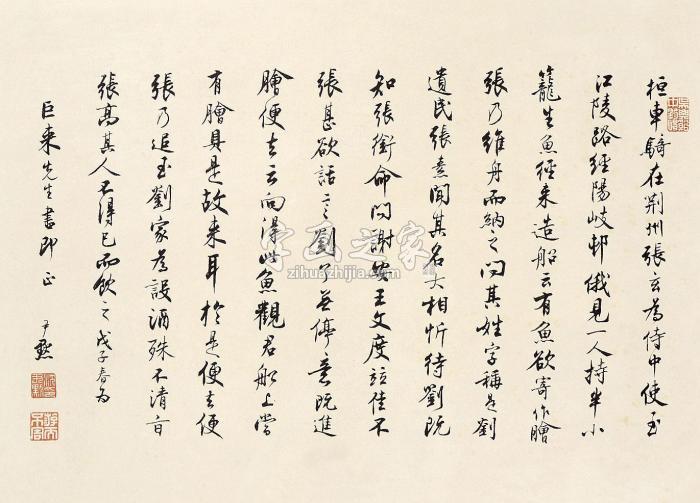 桓車騎在荆州張玄為侍中使至
江陵路經陽岐邨俄見一人持半小
籠生魚徑来造船云有魚欲寄作膾
張乃維舟而納之问其姓字稱是劉
遺民張素闻其名大相忻待劉既
知張銜命问謝安王文度竝佳不
張甚欲話言劉了無停意既進
膾便去云向得此魚觀君船上當
有膾具是故来耳於是便去便
張乃追至劉家為設酒殊不清旨
張高其人不得已而飲之戊子春為
巨来先生書即正
尹默
字画之家
zihuazhijia.com